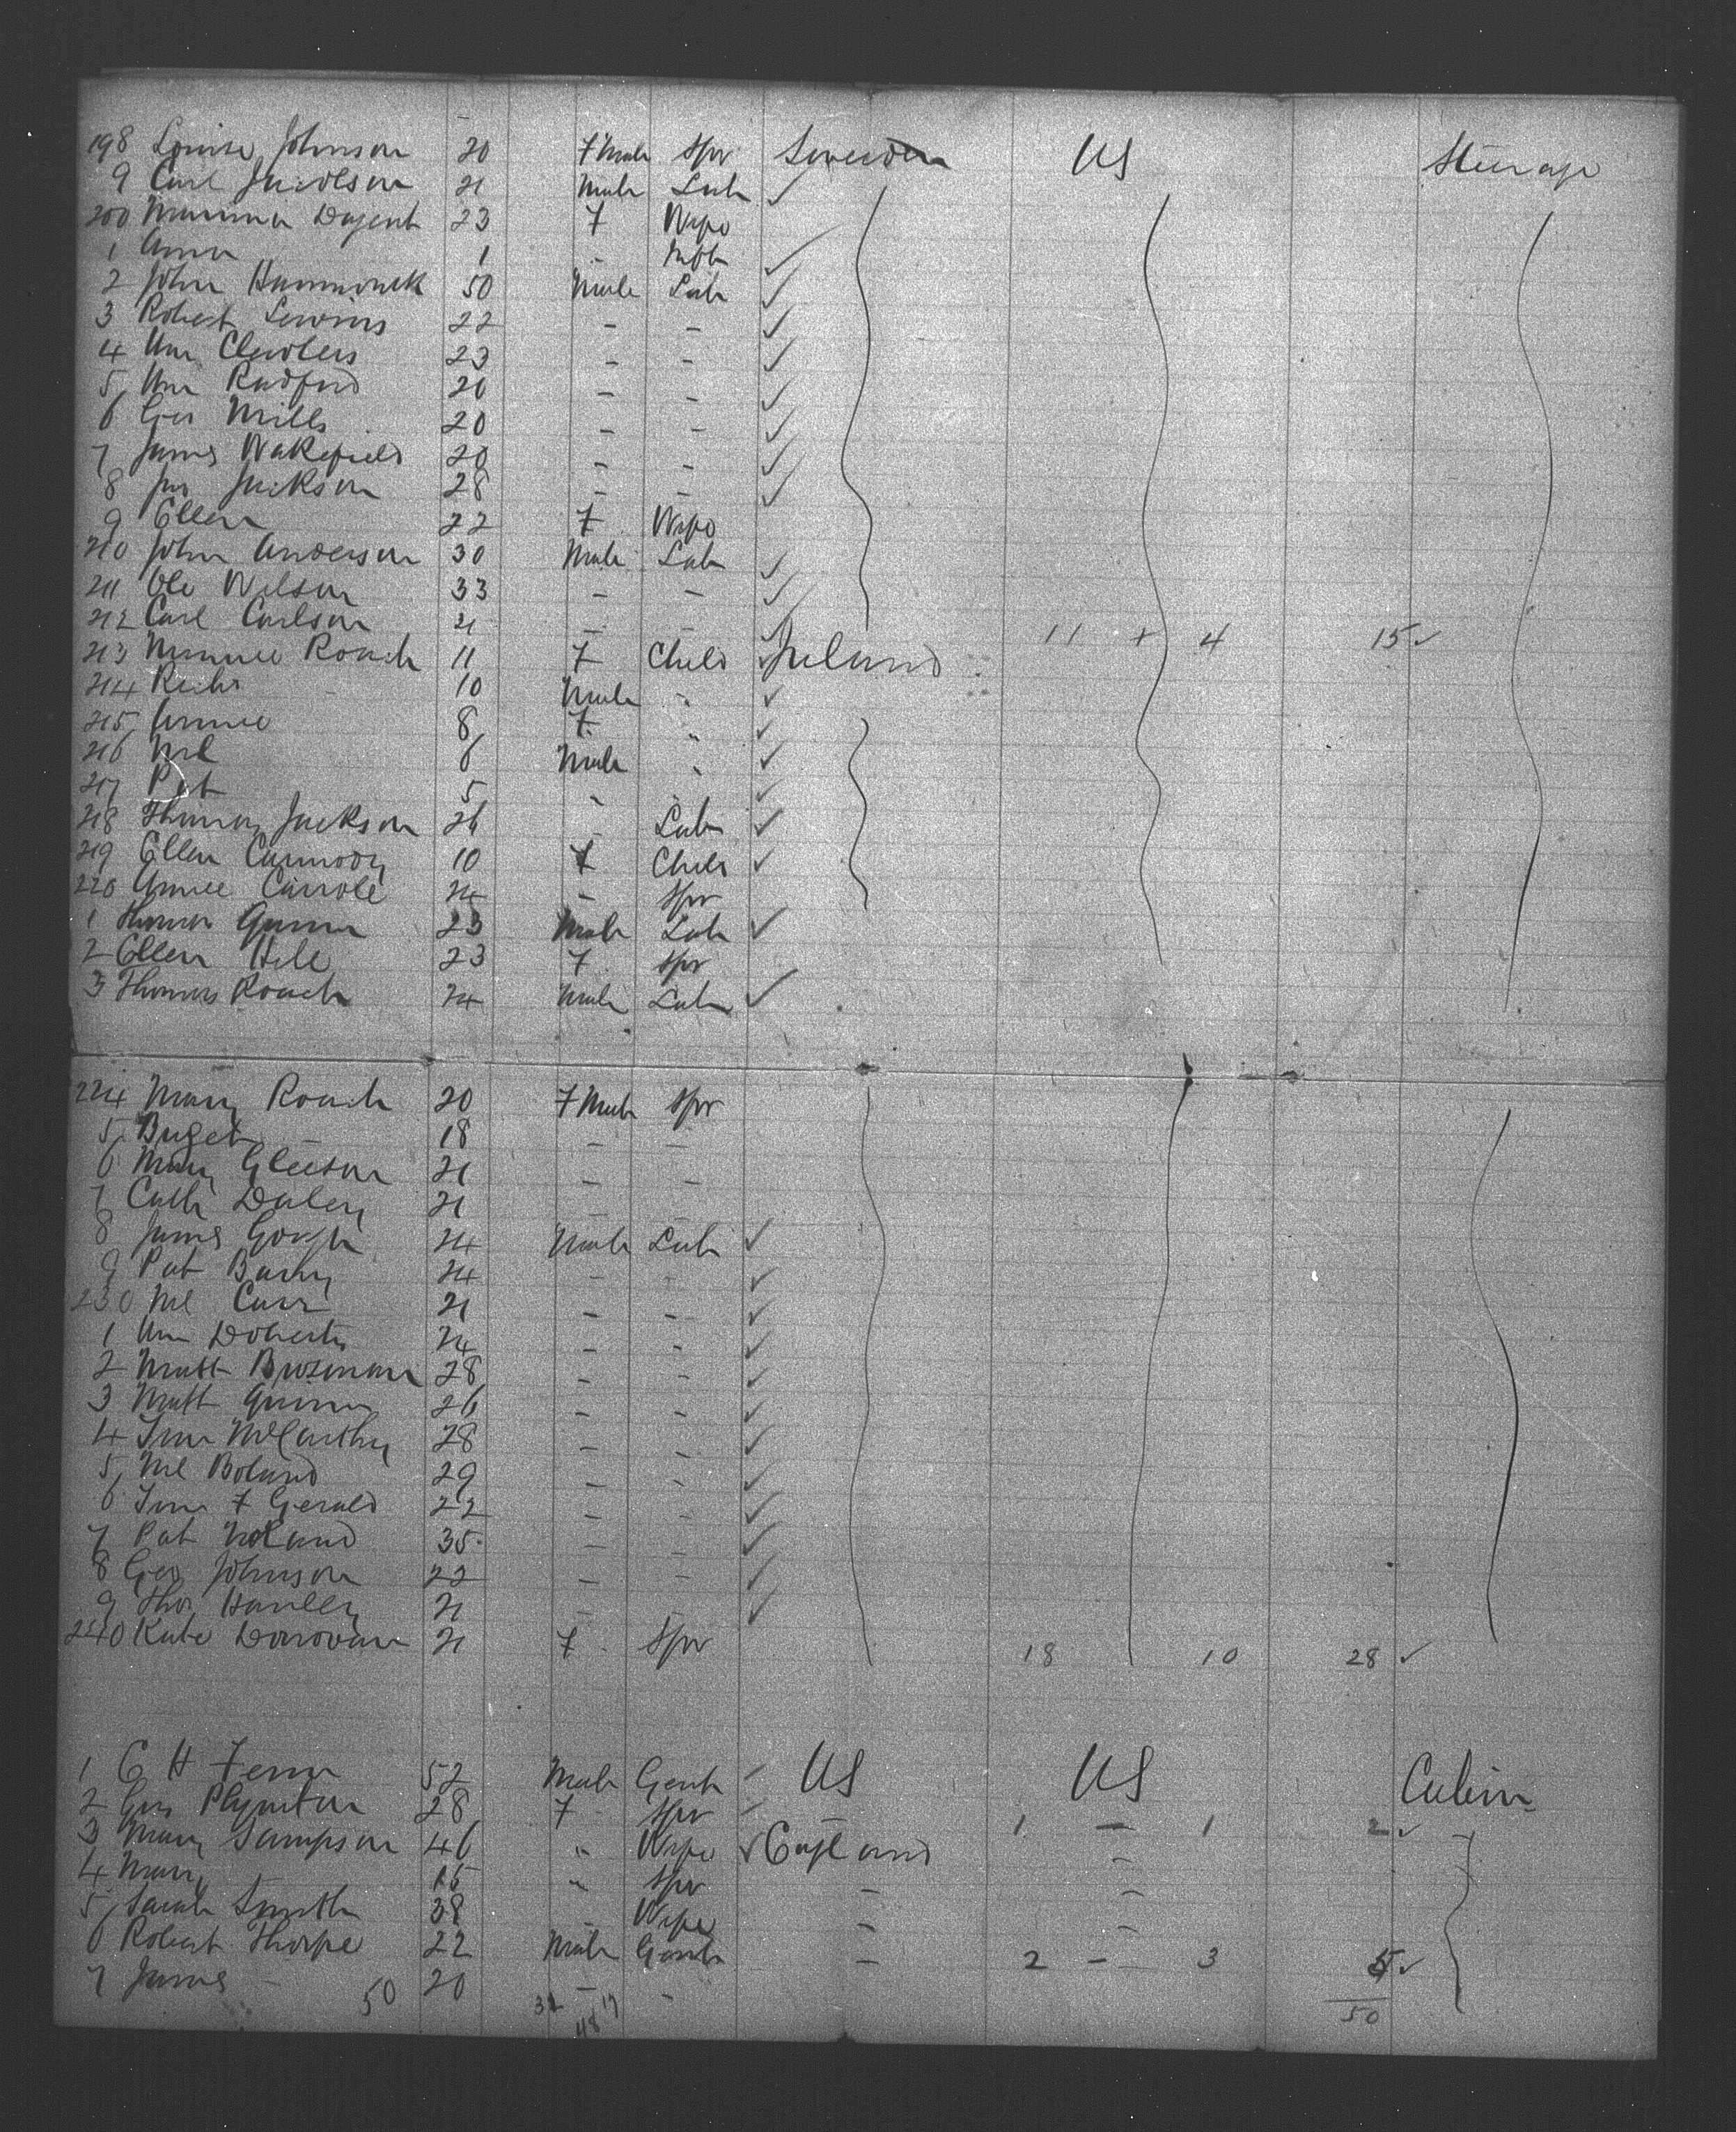 198 Louisa Johnson 20 FMale Spr Sweden US Steerage
9 Carl Jacobson 21 Male Lab ✓
200 Dagent 23 F Wife
1 Anna 1 " Inft ✓
2 John Hammonck 50 Male Lab ✓
3 Robert 22 - - ✓
4 Wm 23 - - ✓
5 Wm Radford 20 - - ✓
6 Geo Mills 20 - - ✓
7 James Wakefield 20 - - ✓
8 Jno Jackson 28 - - ✓
9 Ellen 22 F Wife
210 John Anderson 30 Male Lab ✓
211 Ole Wilson 33 - - ✓
212 Carl Carlson 21 - - ✓ 11 + 4 15 ✓
213 Minnie Roach 11 F Child ✓ Ireland
214 10 Male " ✓
215 Annie 8 F " ✓
216 Ml 6 Male " ✓
217 Pat 5 " " ✓
218 Thomas Jackson 26 - Lab ✓
219 Ellen Carmody 10 F Child ✓
220 Annie Carrole 24 - Spr
1 Thomas 23 Male Lab ✓
2 Ellen Hill 23 F Spr
3 Thomas Roach 24 Male Lab ✓
224 Mary Roach 20 FMale Spr
5 Briget 18 - -
6 Mary Gleeson 21 - -
7 Cath Daley 21 - -
8 James Gough 24 Male Lab ✓
9 Pat Barry 24 - - ✓
230 Ml Carr 21 - - ✓
1 Wm Doherty 24 - - ✓
2 Matt Brosnan 28 - - ✓
3 Matt 26 - - ✓
4 Tim McCarthy 28 - - ✓
5 Ml Boland 29 - - ✓
6 Tim F Gerald 22 - - ✓
7 Pat Noland 35 - - ✓
8 Geo Johnson 22 - - ✓
9 Thos Hanley 21 - - ✓
240 Kate Donovan 21 F Spr 18 10 28 ✓
1 C H Fenn 52 Male Gent ✓ US US Cabin
2 Plympton 28 F Spr ✓ 1 - 1 2 ✓
3 Mary Sampson 46 " Wife ✓ England -
4 Mary 15 " Spr - -
5 Sarah Smith 38 - Wife - -
6 Robert Thorpe 22 Male Gent - 2 - 3 5 ✓
7 James - 20 - -
50 31 17 50
48